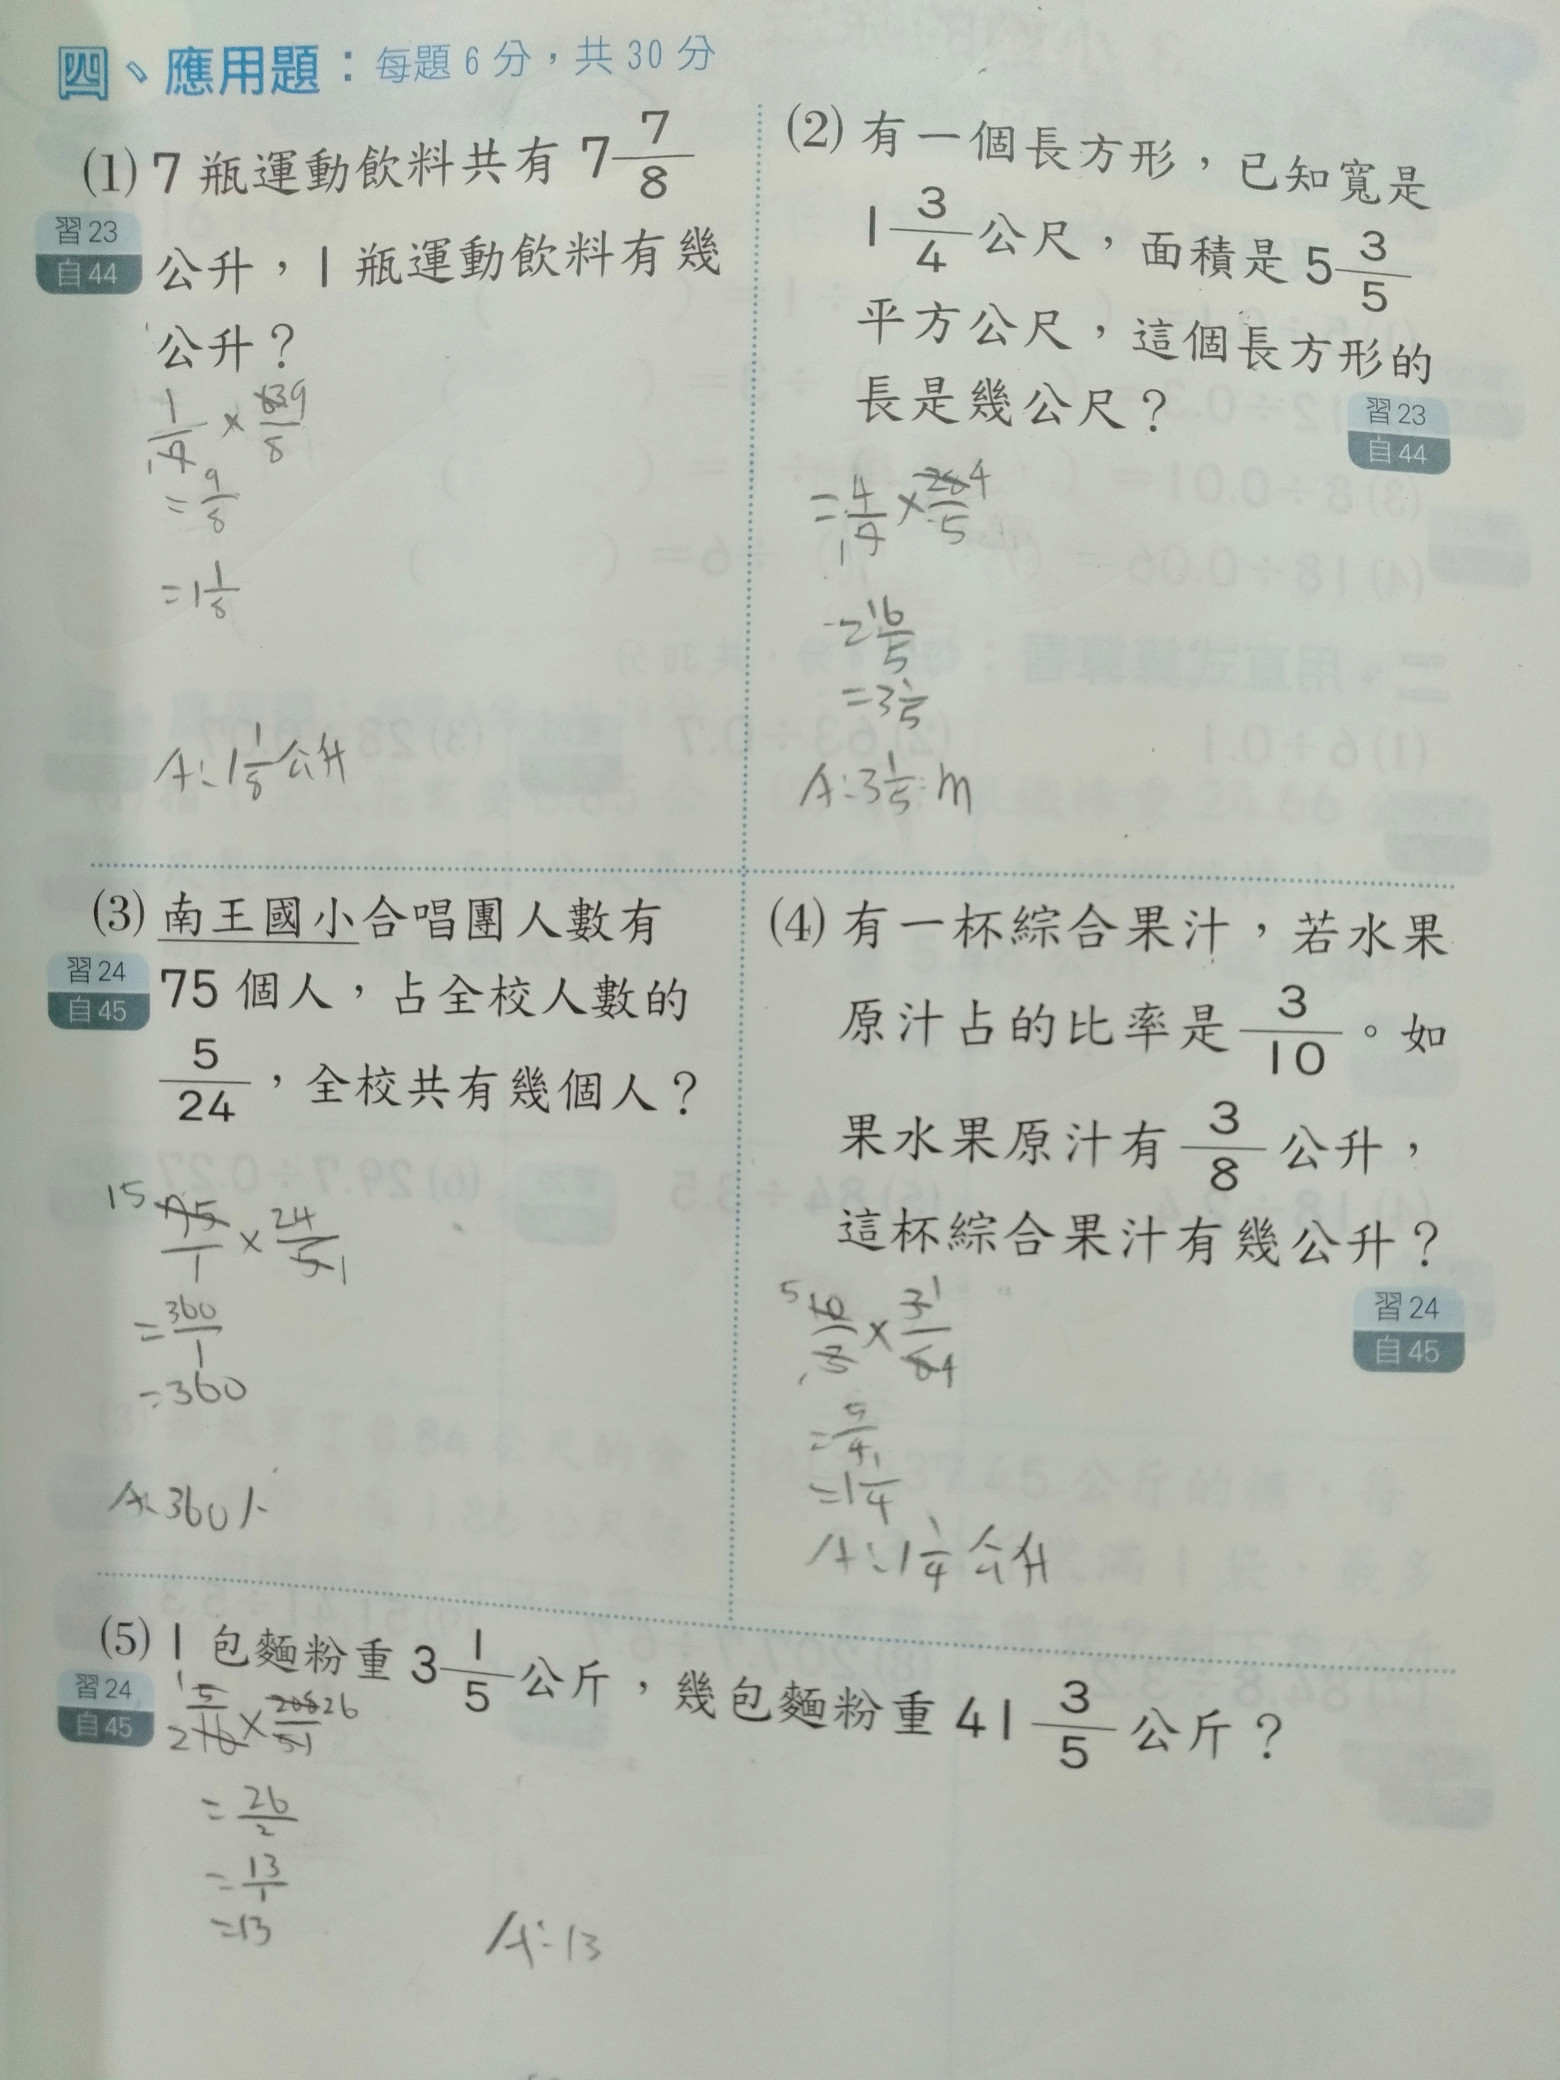 四、應用題：每題 6 分，共 30 分
(1) 7 瓶運動飲料共有 7 7/8
習23
自44
公升，1 瓶運動飲料有幾
公升？
1/7 × 63 9/8
= 9/8
= 1 1/8
A: 1 1/8 公升
(2) 有一個長方形，已知寬是
1 3/4 公尺，面積是 5 3/5
平方公尺，這個長方形的
長是幾公尺？
習23
自44
= 4/7 × 28 4/5
= 16/5
= 3 1/5
A: 3 1/5 m
(3) 南王國小合唱團人數有
習24
自45
75 個人，占全校人數的
5/24，全校共有幾個人？
15 75/1 × 24/5 1
= 360/1
= 360
A: 360人
(4) 有一杯綜合果汁，若水果
原汁占的比率是 3/10。如
果水果原汁有 3/8 公升，
這杯綜合果汁有幾公升？
習24
自45
5 10/3 × 3 1/8 4
= 5/4
= 1 1/4
A: 1 1/4 公升
(5) 1 包麵粉重 3 1/5 公斤，幾包麵粉重 41 3/5 公斤？
習24
自45
1 5/2 16 × 208 26/5 1
= 26/2
= 13/1
= 13
A: 13